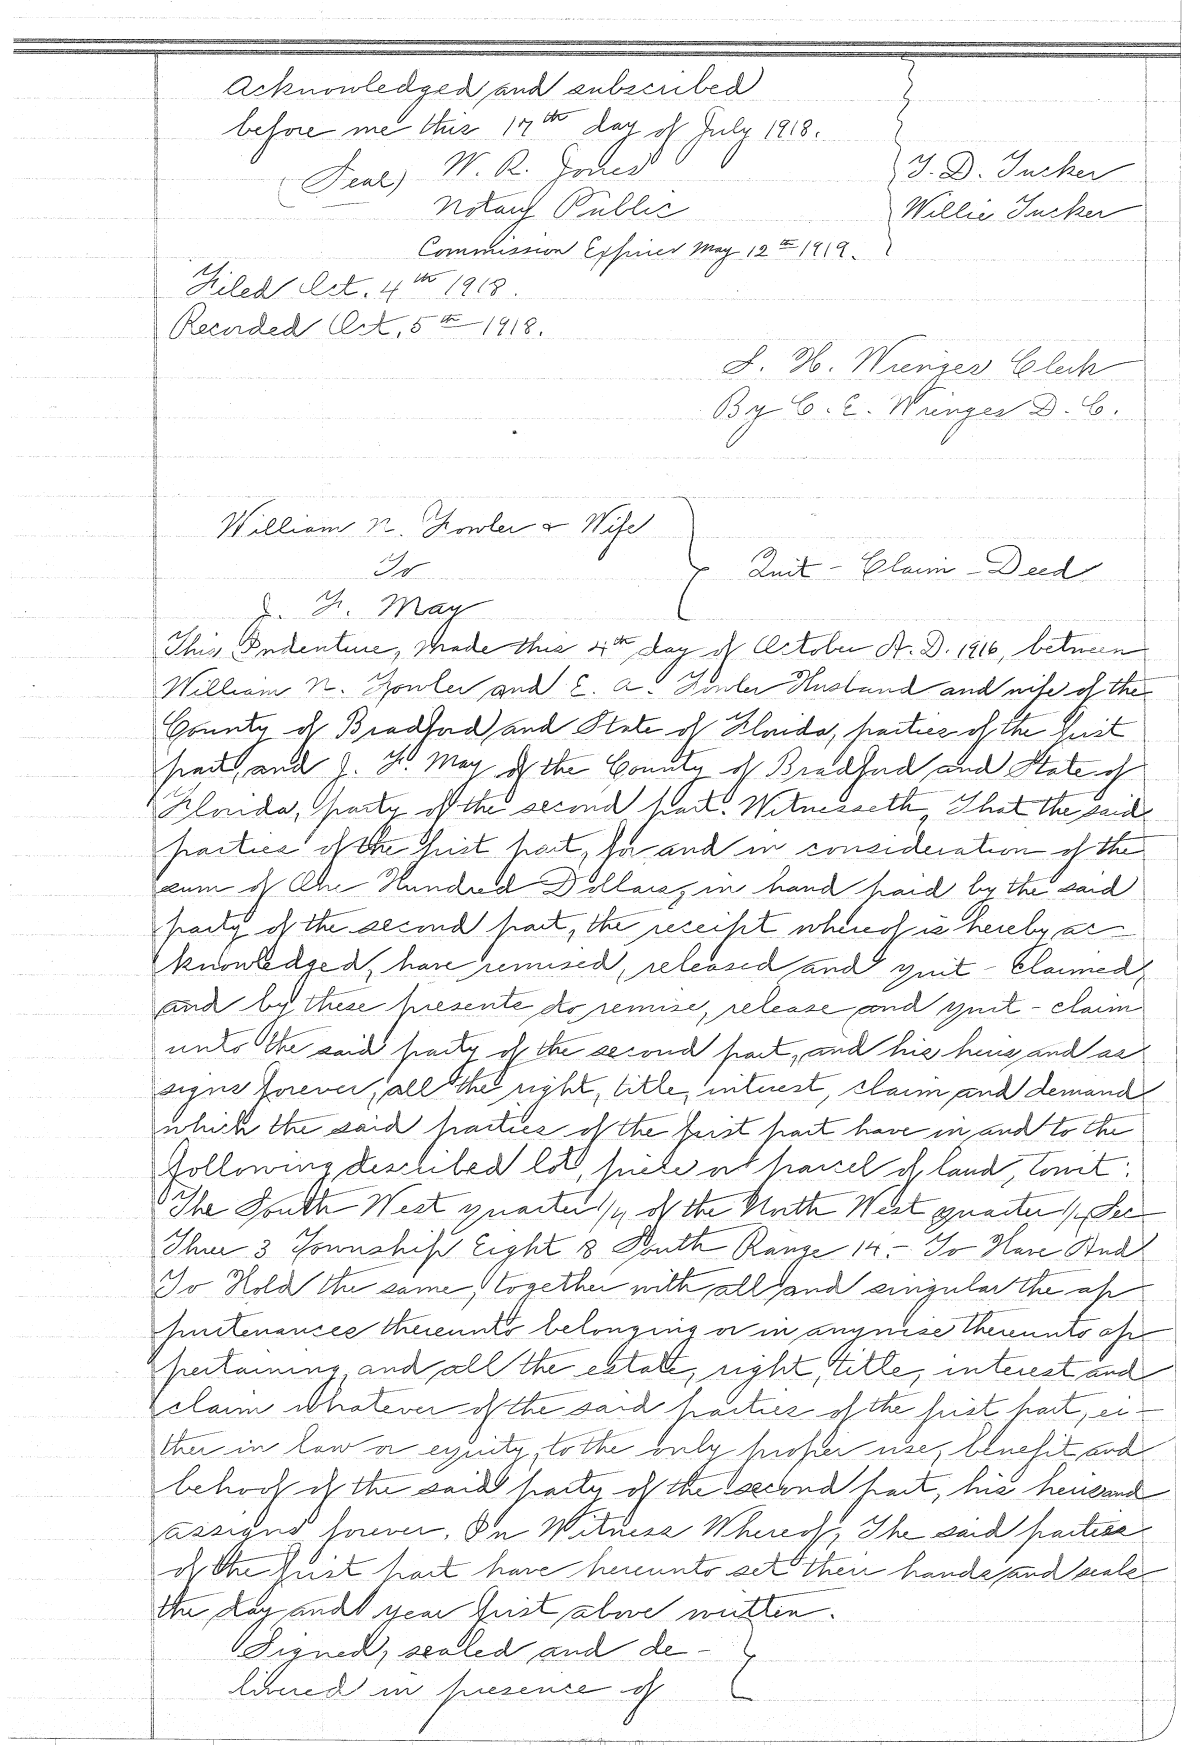 Acknowledged and subscribed
before me this 17th day of July 1918.
(Seal) W. R. Jones
Notary Public
Commission Expires May 12th 1919.
T. D. Tucker
Willie Tucker
Filed Oct. 4th 1918.
Recorded Oct. 5th 1918.
Clerk
By C. E. D. C.
William N. Fowler & Wife
To
J. F. May
Quit - Claim - Deed
This Indenture, made this 4th day of October A. D. 1916, between
William N. Fowler and E. A. Fowler Husband and wife of the
County of Bradford and State of Florida, parties of the first
part, and J. F. May of the County of Bradford and State of
Florida, party of the second part. Witnesseth, That the said
parties of the first part, for and in consideration of the
sum of One Hundred Dollars, in hand paid by the said
party of the second part, the receipt whereof is hereby ac-
knowledged, have remised, released and quit - claimed,
and by these presents do remise, release and quit - claim
unto the said party of the second part, and his heirs and as
signs forever, all the right, title, interest, claim and demand
which the said parties of the first part have in and to the
following described lot, piece or parcel of land, towit:
The South West quarter 1/4 of the North West quarter 1/4 Sec
Three 3 Township Eight 8 South Range 14.- To Have And
To Hold the same, together with all and singular the ap
purtenances thereunto belonging or in anywise thereunto ap-
pertaining, and all the estate, right, title, interest and
claim whatever of the said parties of the first part, ei-
ther in law or equity, to the only proper use, benefit and
behoof of the said party of the second part, his heirs and
assigns forever. In Witness Whereof, The said parties
of the first part have hereunto set their hands and seals
the day and year first above written.
Signed, sealed and de-
livered in presence of